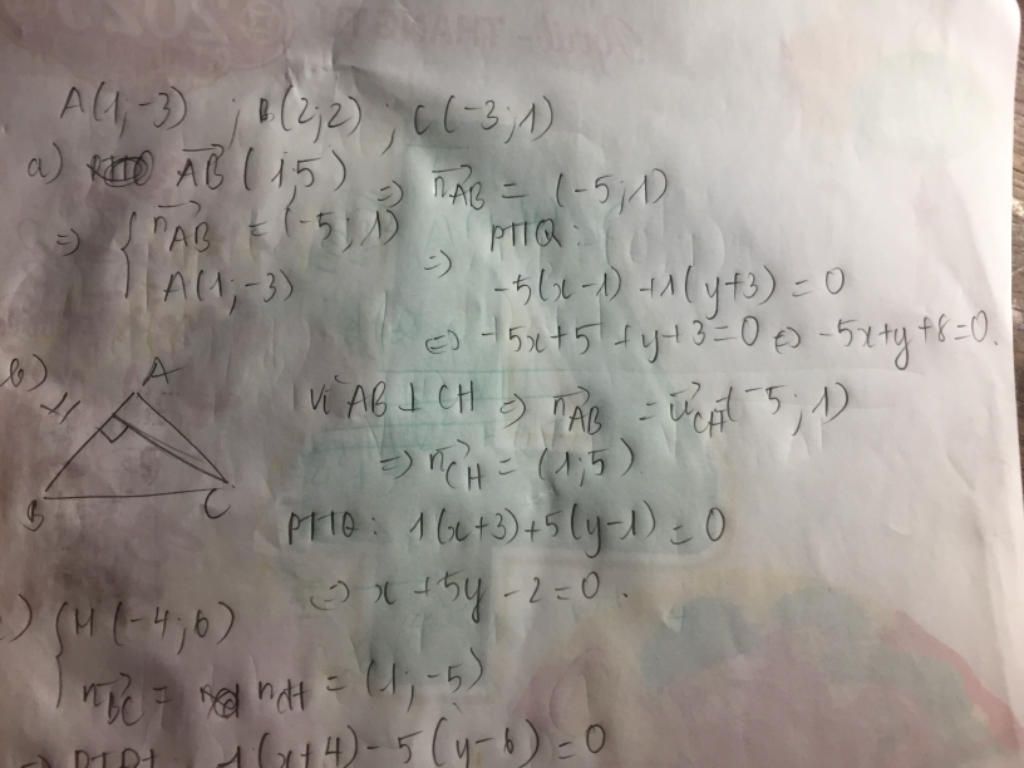 A(1;-3) ; B(2;2) ; C(-3;1)
a) AB(1;5) => nAB = (-5;1)
=> { nAB = (-5;1)
A(1;-3)
=> PTTQ:
-5(x-1)+1(y+3)=0
<=> -5x+5+y+3=0 <=> -5x+y+8=0.
b)
A
H
B
C
Vì AB ⊥ CH => nAB = uCH(-5;1)
=> nCH = (1;5)
PTTQ: 1(x+3)+5(y-1)=0
<=> x+5y-2=0.
) { M(-4;6)
nBC = nCH = (1;-5)
1(x+4)-5(y-6)=0